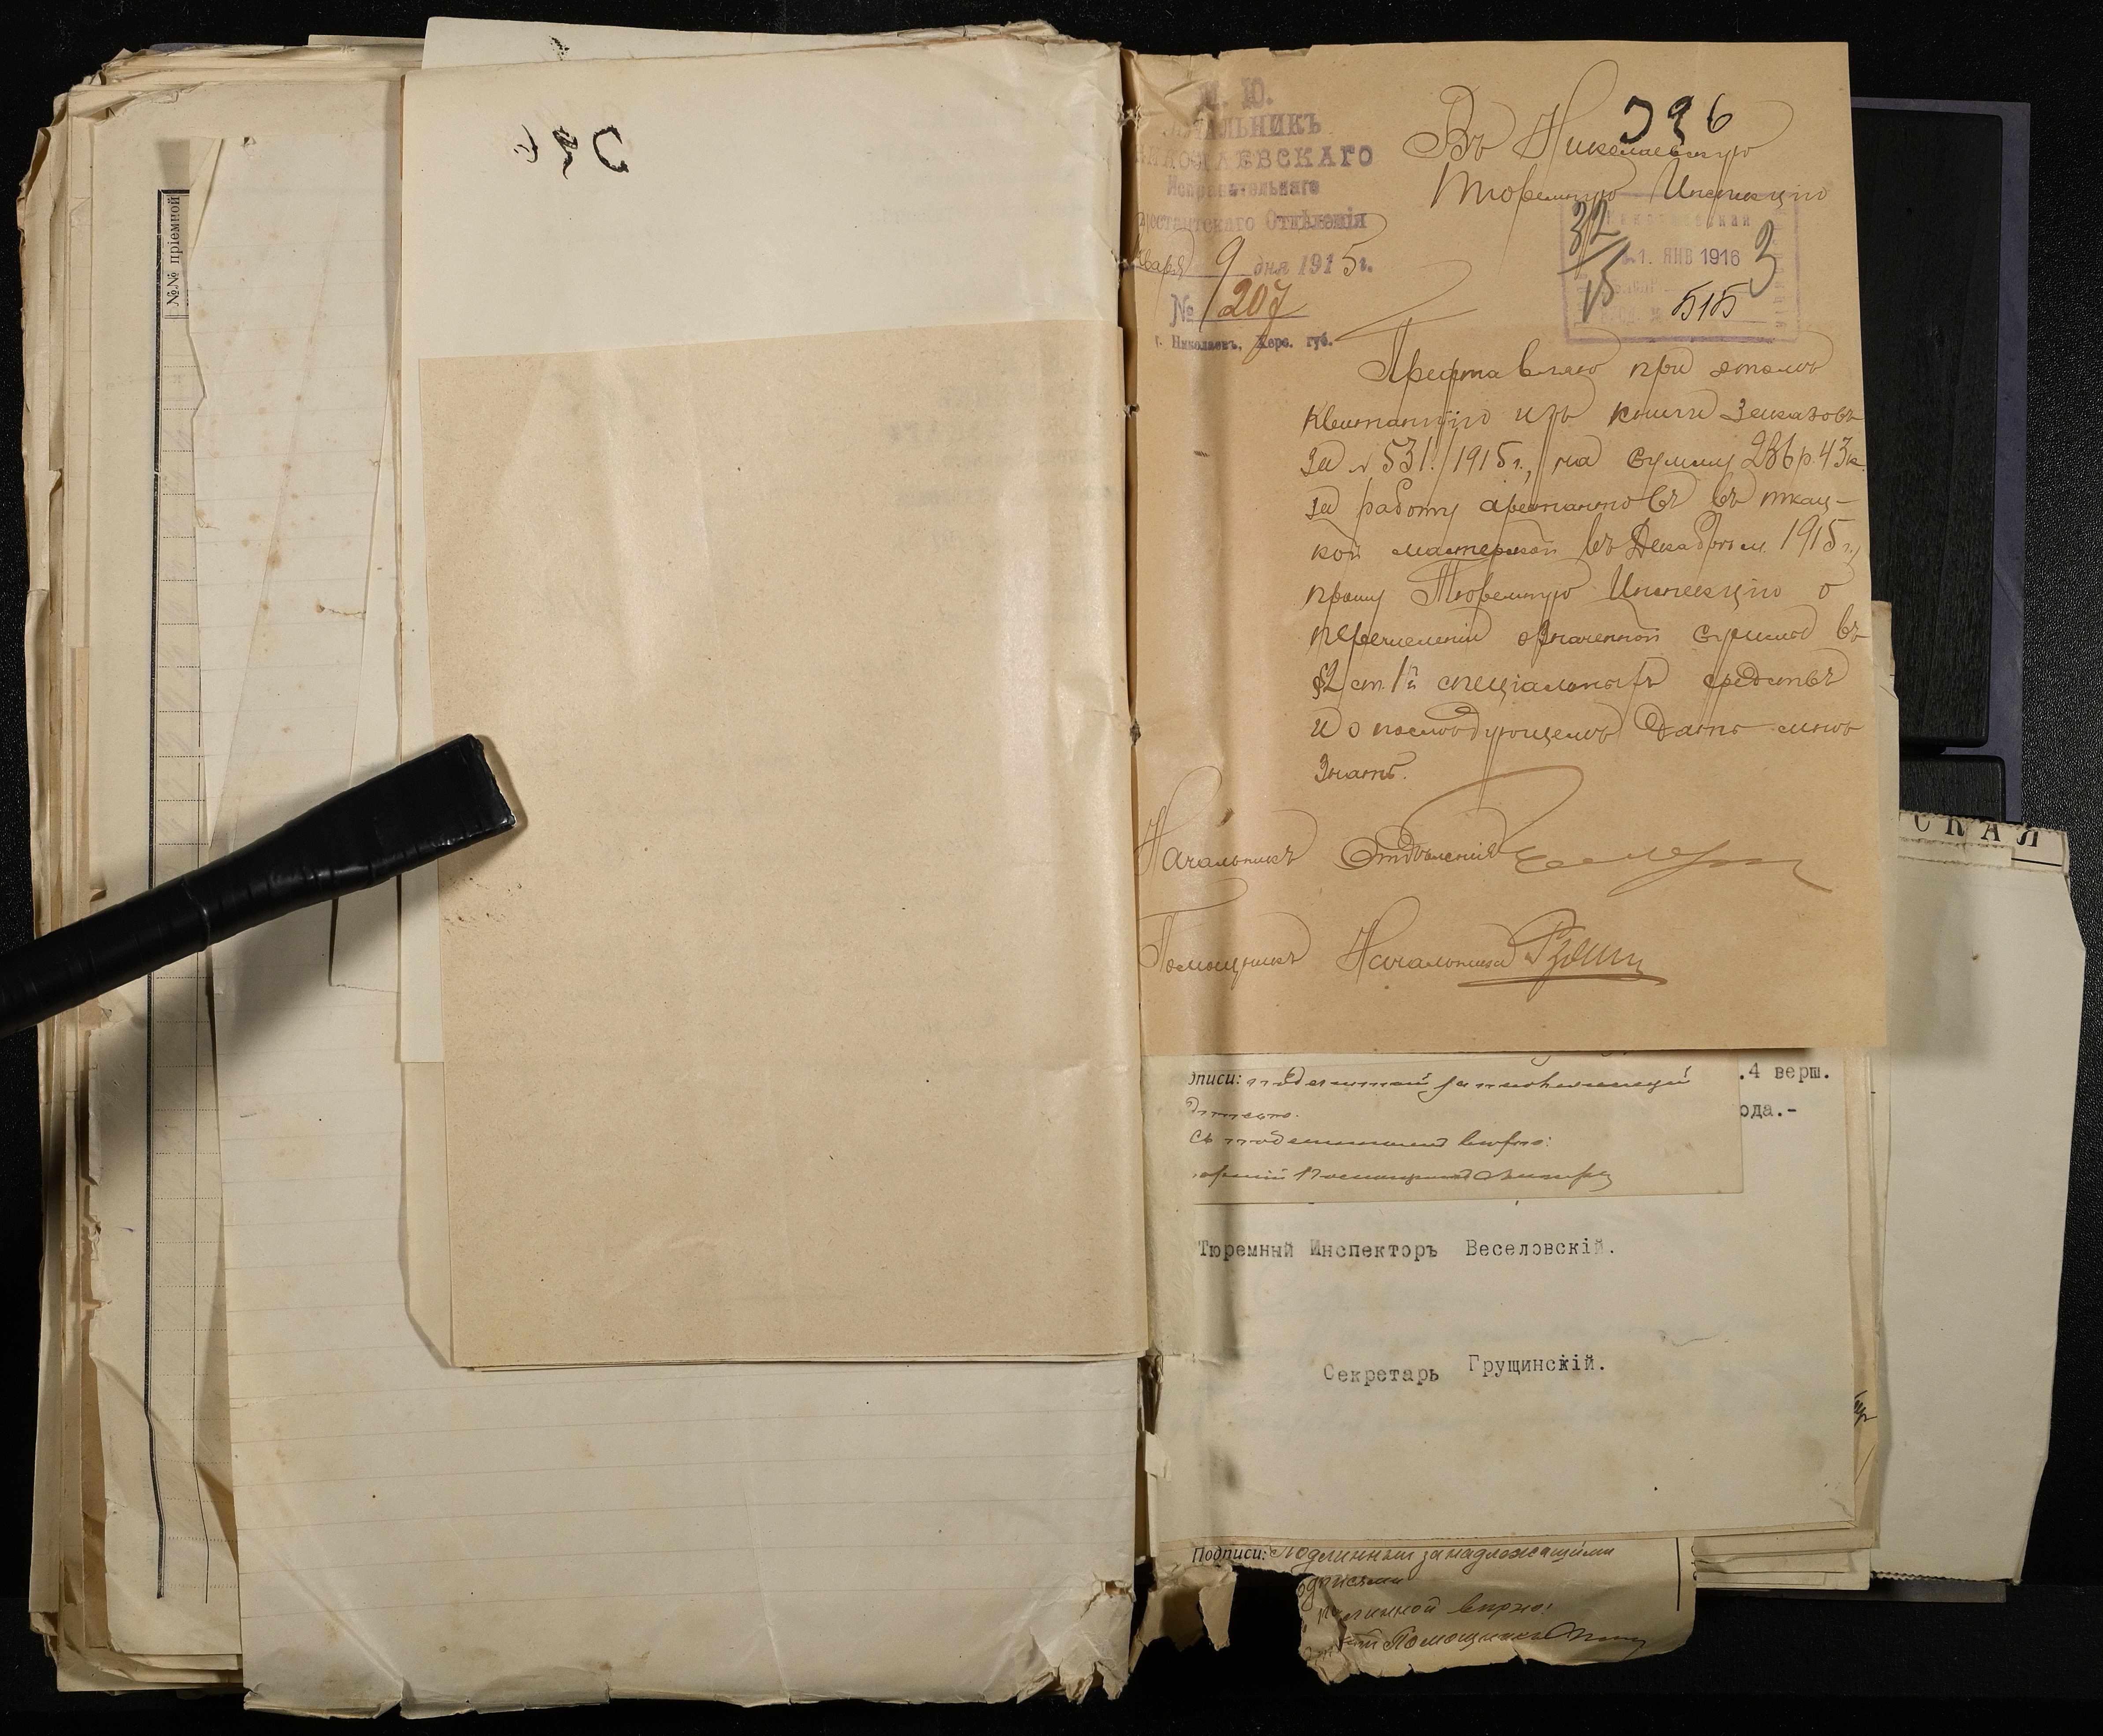 №№ пріемной
396
М. Ю.
НАЧАЛЬНИКЪ
НИКОЛАЕВСКАГО
Исправительнаго
Арестантскаго Отдѣленія
Января 9 дня 1915 г.
№ 207
г. Николаевъ, Херс. губ.
Въ Николаевскую
Тюремную Инспекцію
32
15
3
1. ЯНВ 1916
515
Представляю при этомъ
квитанцію изъ книги Заказовъ
за № 531. 1915 г., на сумму 236 р. 43 к.
за работу арестантовъ въ ткац-
кой мастерской въ Декабрѣ м. 1915 г.,
прошу Тюремную Инспекцію о
перечисленіи означенной суммы въ
§2 ст. 1й спеціальныхъ средствъ
и о послѣдующемъ дать мнѣ
знать.
Начальникъ Отдѣленія
Помощникъ Начальника
дписи:
.4 верш.
ода.-
Съ подлиннымъ вѣрно:
Тюремный Инспекторъ Веселовскій.
Секретарь Грущинскій.
СКАЯ
Подписи: Подлинный за надлежащими
одписями
подлинной вѣрно:
Помощникъ